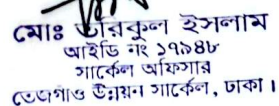 মোঃ তরিকুল ইসলাম
আইডি নং ১৭৯৪৮
সার্কেল অফিসার
তেজগাঁও উন্নয়ন সার্কেল, ঢাকা।